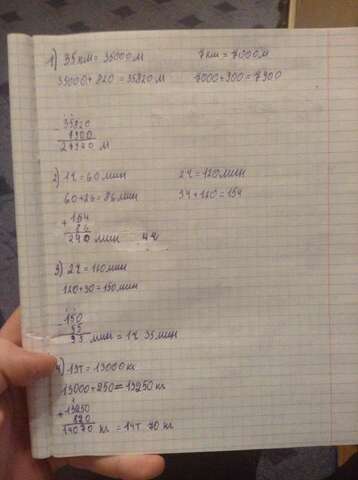 1) 35км = 35000м 7км = 7000м
35000 + 820 = 35820м 7000 + 900 = 7900
35820
7900
27920 м
2) 1ч = 60мин 2ч = 120мин
60 + 26 = 86мин 34 + 120 = 154
+ 154
86
240 мин 4ч
3) 2ч = 120мин
120 + 30 = 150мин
- 150
55
95 мин = 1ч 35мин
4) 13т = 13000кг
13000 + 250 = 13250кг
+ 13250
820
14070 кг = 14т 70 кг